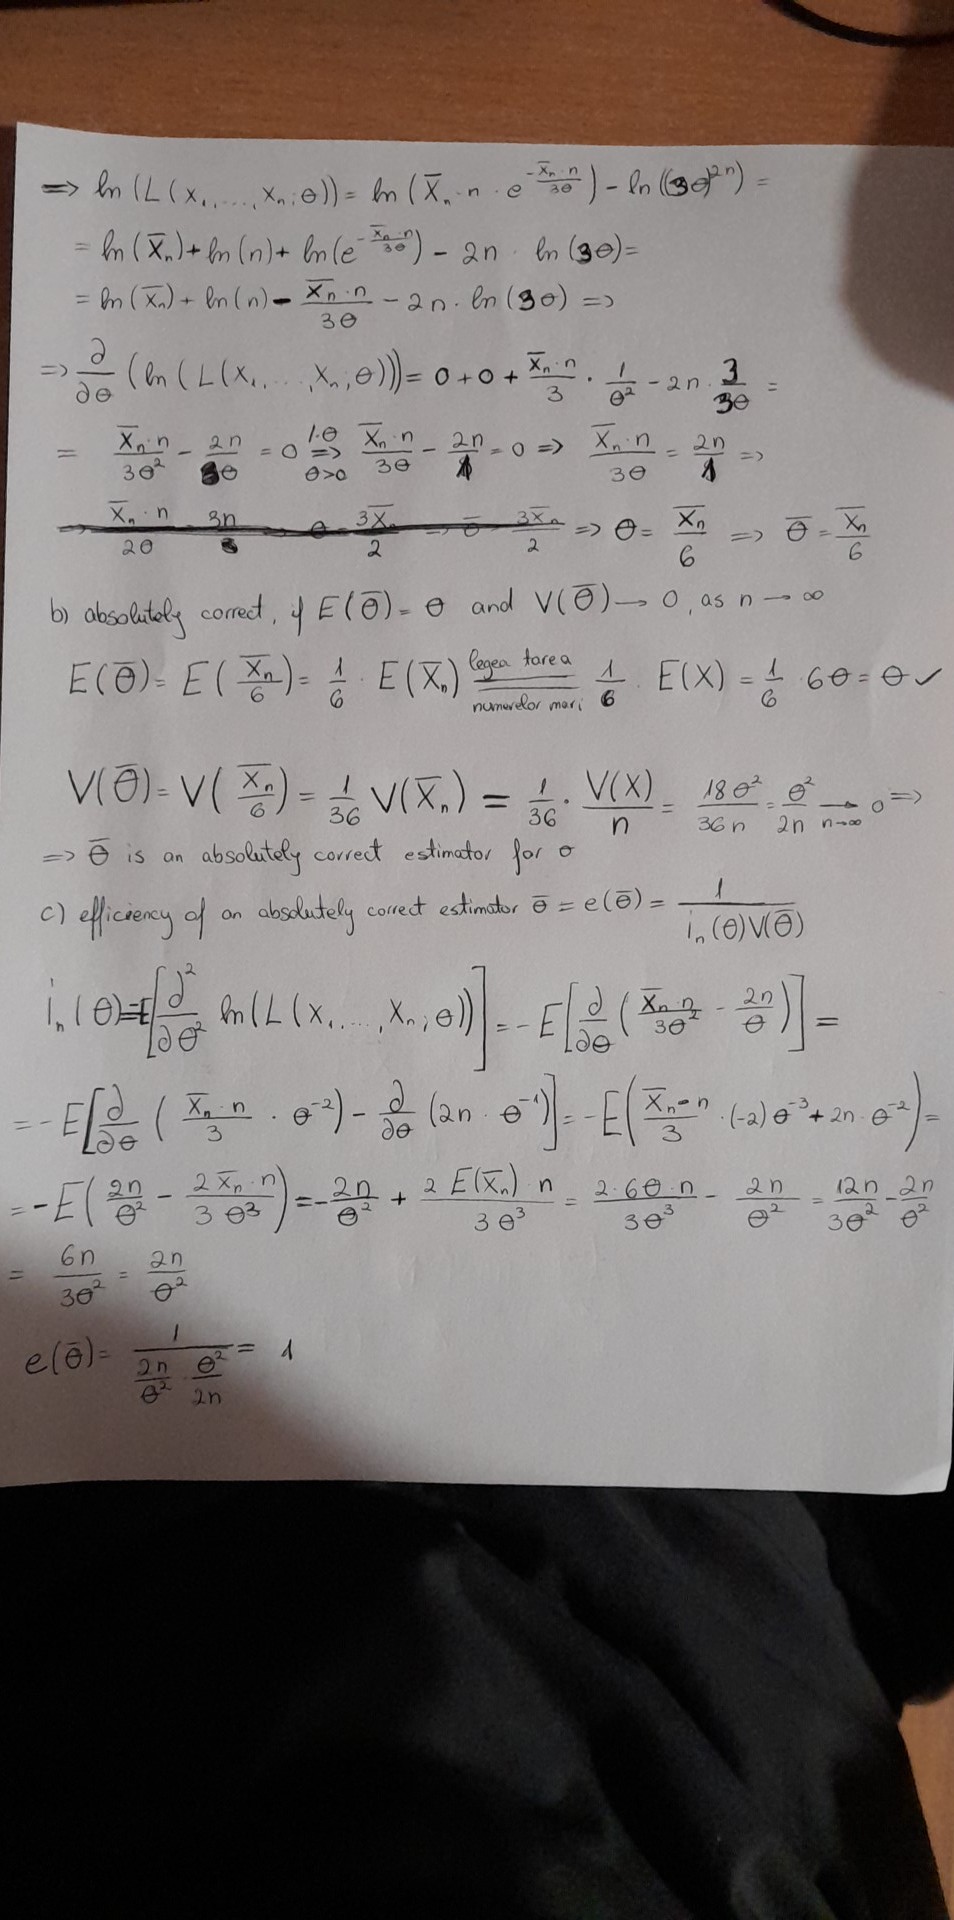 => ln (L(x₁,...,xₙ;θ)) = ln (X̄ₙ · n · e^(-X̄ₙ·n/3θ)) - ln((3θ)^2n) =
= ln(X̄ₙ) + ln(n) + ln(e^(-X̄ₙ·n/3θ)) - 2n · ln(3θ) =
= ln(X̄ₙ) + ln(n) - X̄ₙ·n/3θ - 2n · ln(3θ) =>
=> ∂/∂θ (ln(L(x₁,...,xₙ;θ))) = 0 + 0 + X̄ₙ·n/3 · 1/θ² - 2n · 3/3θ =
= X̄ₙ·n/3θ² - 2n/θ = 0 |·θ =>, θ>0 X̄ₙ·n/3θ - 2n/1 = 0 => X̄ₙ·n/3θ = 2n/1 =>
=> θ = X̄ₙ/6 => θ̄ = X̄ₙ/6
b) absolutely correct, if E(θ̄) = θ and V(θ̄) → 0, as n → ∞
E(θ̄) = E(X̄ₙ/6) = 1/6 · E(X̄ₙ) legea tarea numerelor mari = 1/6 · E(X) = 1/6 · 6θ = θ ✓
V(θ̄) = V(X̄ₙ/6) = 1/36 V(X̄ₙ) = 1/36 · V(X)/n = 18θ²/36n = θ²/2n → 0 n→∞ =>
=> θ̄ is an absolutely correct estimator for θ
c) efficiency of an absolutely correct estimator θ̄ = e(θ̄) = 1/iₙ(θ)V(θ̄)
iₙ(θ) = -E[∂²/∂θ² ln(L(x₁,...,xₙ;θ))] = -E[∂/∂θ (X̄ₙ·n/3θ² - 2n/θ)] =
= -E[∂/∂θ (X̄ₙ·n/3 · θ⁻²) - ∂/∂θ (2n · θ⁻¹)] = -E(X̄ₙ·n/3 · (-2)θ⁻³ + 2n · θ⁻²) =
= -E(2n/θ² - 2X̄ₙ·n/3θ³) = -2n/θ² + 2E(X̄ₙ)·n/3θ³ = 2·6θ·n/3θ³ - 2n/θ² = 12n/3θ² - 2n/θ²
= 6n/3θ² = 2n/θ²
e(θ̄) = 1/(2n/θ² · θ²/2n) = 1